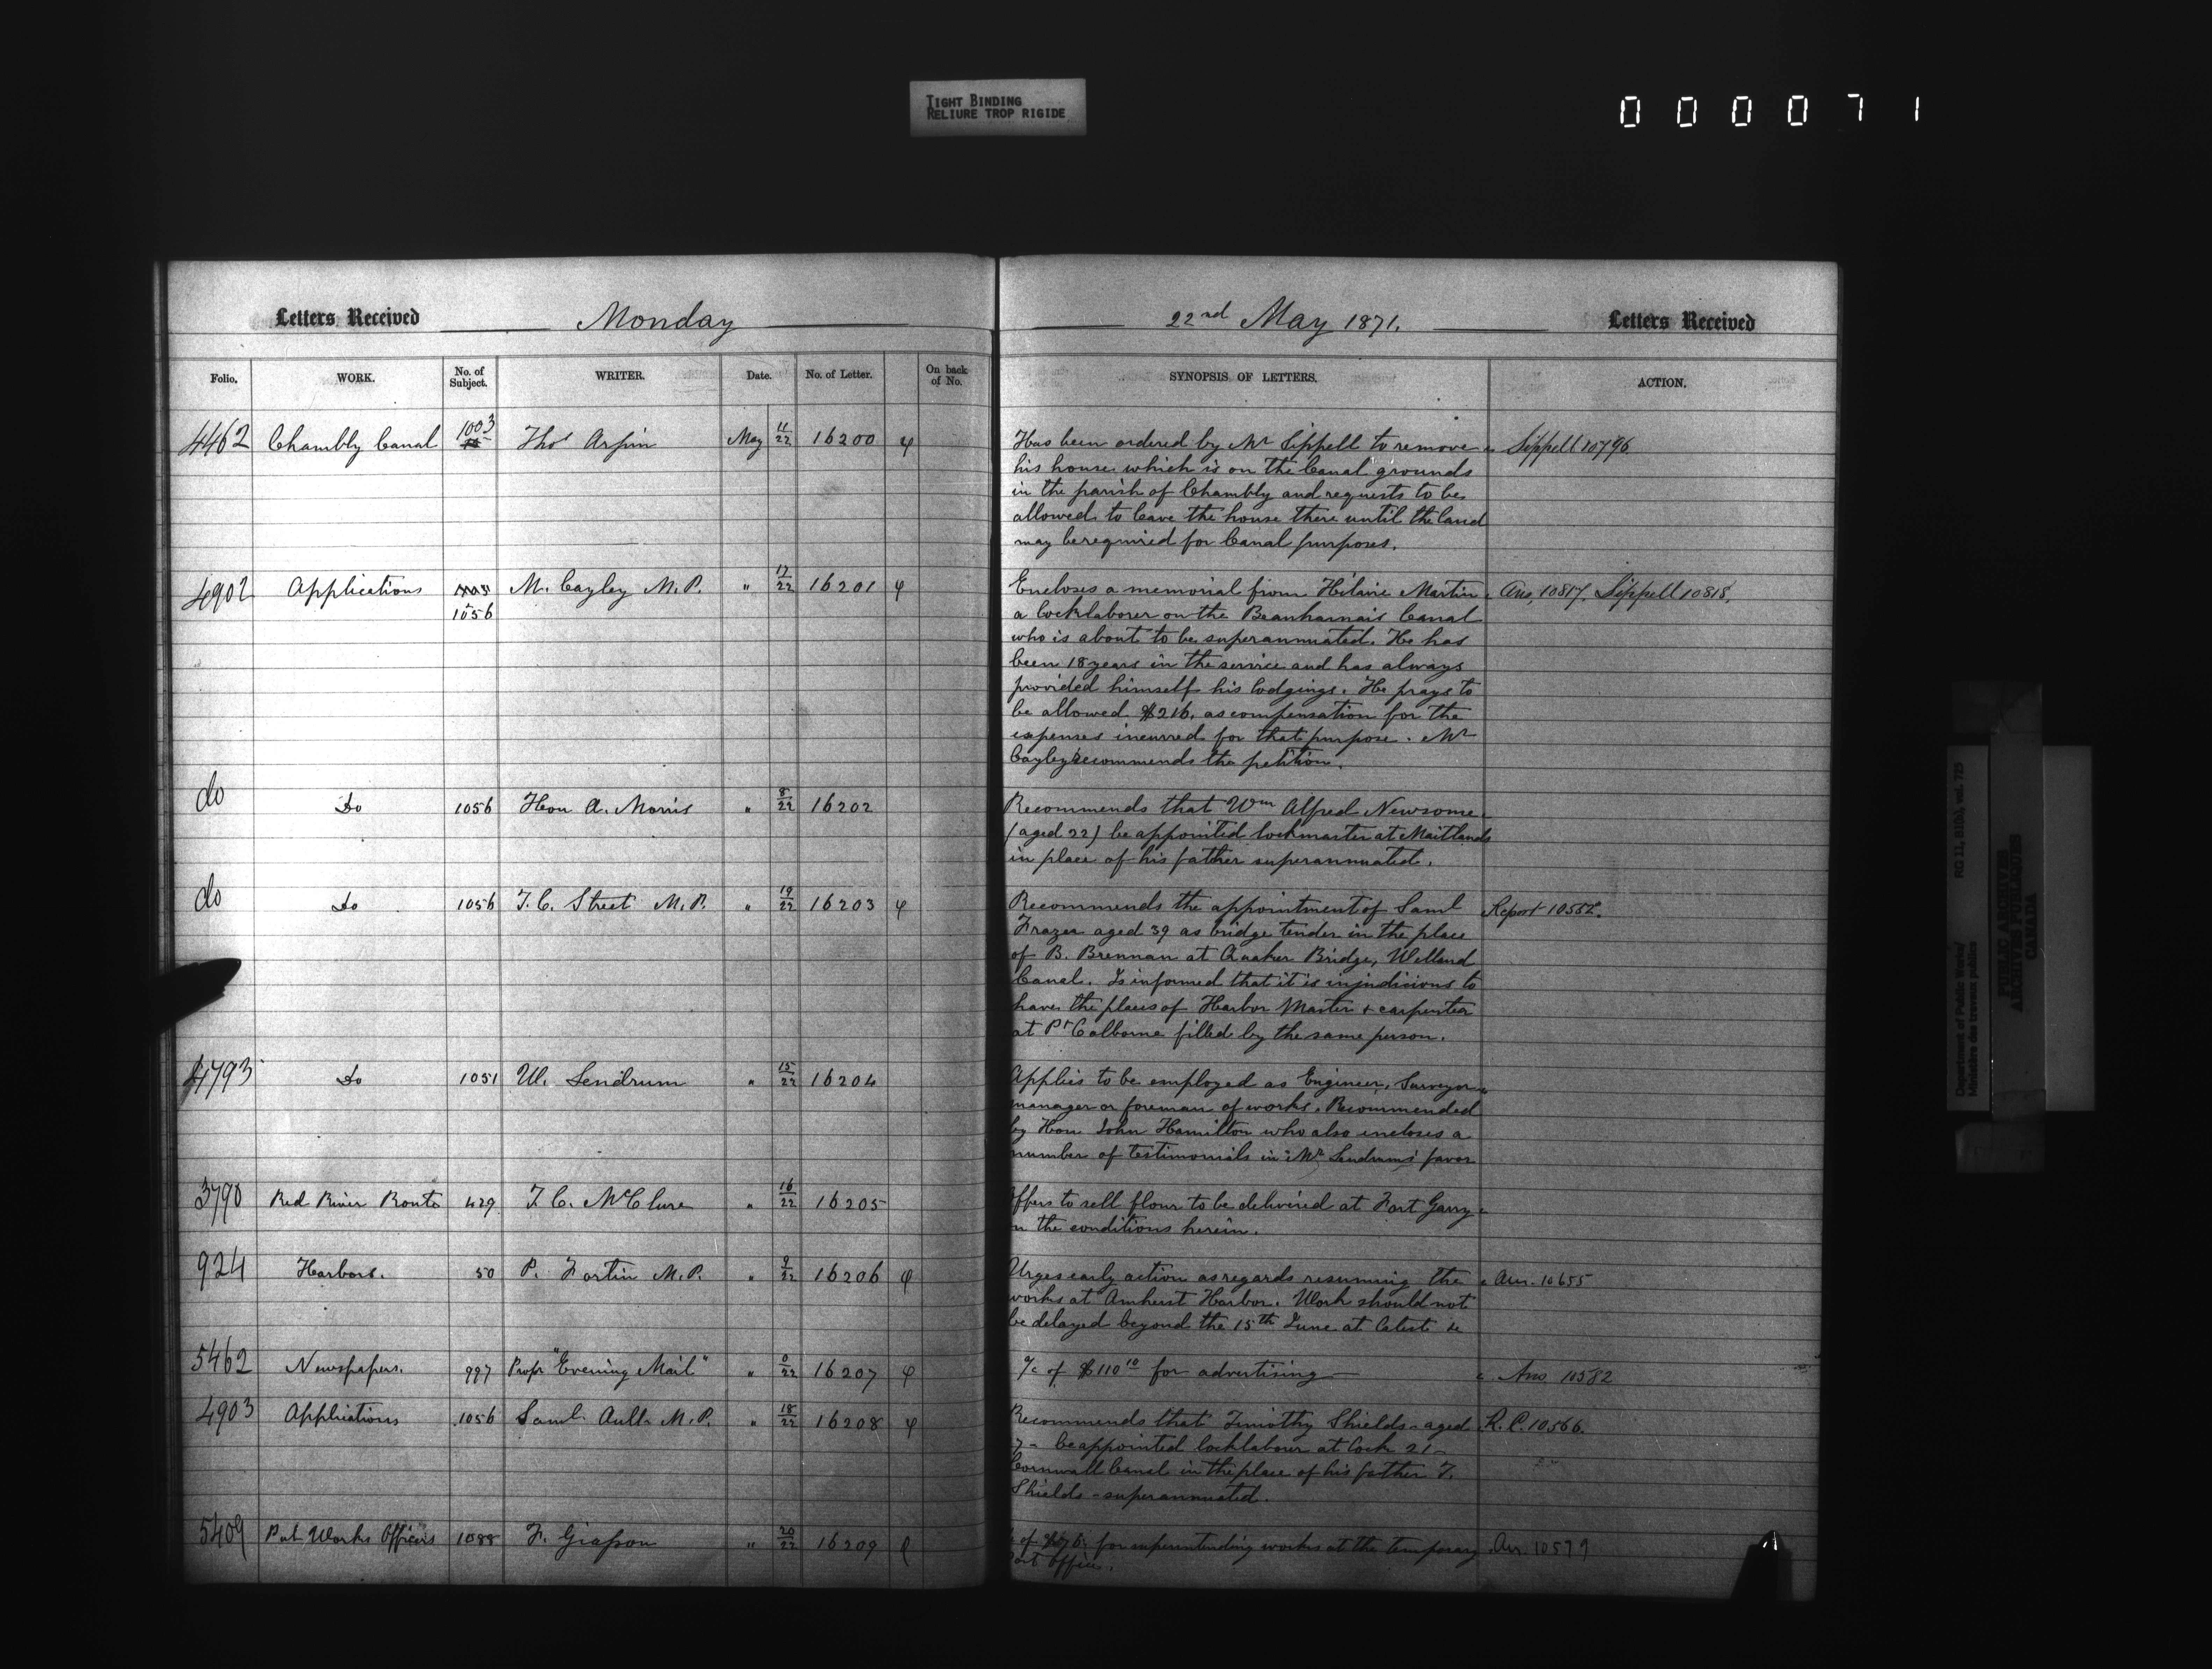 TIGHT BINDING
RELIURE TROP RIGIDE
000071
Letters Received Monday
Folio. WORK. No. of Subject. WRITER. Date. No. of Letter. On back of No.
4462 Chambly Canal 1003 Thos Arpin May 11/22 16200
4902 Applications M. Cayley M.P. " 17/22 16201
1056
do Do 1056 Hon A. Morris " 8/22 16202
do Do 1056 T. C. Street M.P. " 19/22 16203
4793 Do 1051 W. Lendrum " 15/22 16204
3790 Red River Route 429 T. C. McClure " 16/22 16205
924 Harbors. 50 P. Fortin M.P. " 9/22 16206
5462 Newspapers. 997 Propr "Evening Mail" " 0/22 16207
4903 Applications 1056 Saml Ault M.P. " 18/22 16208
5409 Pub Works Officers 1088 F. Giasson " 20/22 16209
22nd May 1871. Letters Received
SYNOPSIS OF LETTERS. ACTION.
Has been ordered by Mr Sippell to remove Sippell 10796
his house which is on the Canal grounds
in the parish of Chambly and requests to be
allowed to leave the house there until the land
may be required for Canal purposes.
Encloses a memorial from Hilaire Martin Ans. 10817. Sippell 10818.
a locklaborer on the Beauharnais Canal
who is about to be superannuated. He has
been 18 years in the service and has always
provided himself his lodgings. He prays to
be allowed $216. as compensation for the
expenses incurred for that purpose. Mr
Cayley recommends the petition.
Recommends that Wm Alfred Newsome
(aged 22) be appointed lockmaster at Maitlands
in place of his father superannuated.
Recommends the appointment of Saml Report 10582.
Frazer aged 39 as bridge tender in the place
of B. Brennan at Quaker Bridge, Welland
Canal. Is informed that it is injudicious to
have the places of Harbor Master & carpenter
at Pt Colborne filled by the same person.
Applies to be employed as Engineer, Surveyor
manager or foreman of works. Recommended
by Hon John Hamilton who also encloses a
number of testimonials in Mr Lendrum's favor
ffers to sell flour to be delivered at Fort Garry
n the conditions herein.
Urges early action as regards resuming the Ans. 10655
works at Amherst Harbor. Work should not
be delayed beyond the 15th June at latest &c
a/c of $110 10 for advertising Ans. 10582
Recommends that Timothy Shields - aged R.C. 10566.
7 - be appointed locklabour at Lock 21 -
Cornwall Canal in the place of his father T.
Shields - superannuated.
of for superintending works at the temporary An. 10579
Post Office.
Department of Public Works/ RG 11, B1(b), vol. 725
Ministère des travaux publics
PUBLIC ARCHIVES
ARCHIVES PUBLIQUES
CANADA